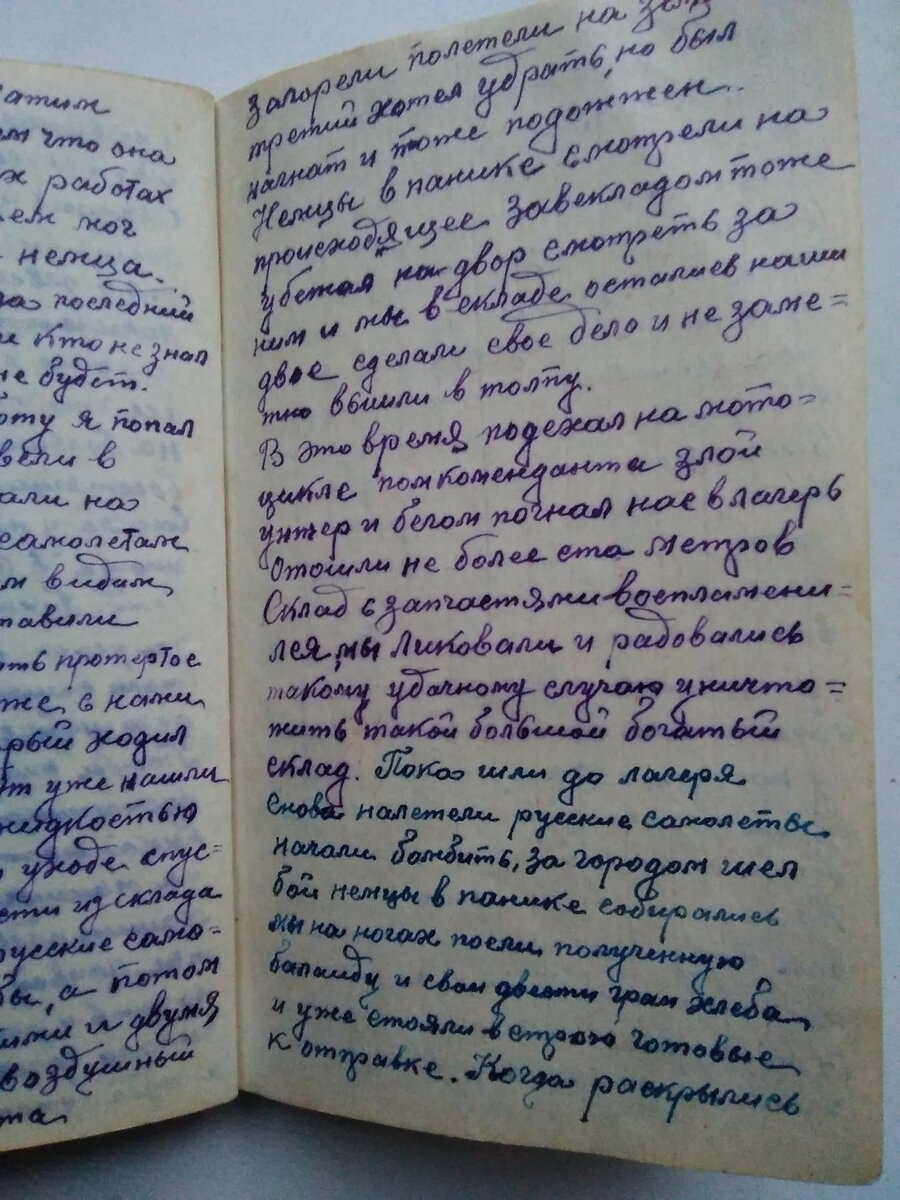 атим
ем что она
х работах
ем мог
немца.
на последний
и кто не знал
не будет.
оту я попал
вели в
али на
самолетам
м видим
тавили
ать протертое
же с нами
рый ходил
от уже нашли
жидкостью
уходе спус-
сти из склада
русские само-
бы, а потом
ими и двумя
воздушный
та
загорели полетели на зем
третий хотел убрать, но был
нагнат и тоже подожжен.
Немцы в панике смотрели на
происходящее завскладом тоже
убежал на двор смотреть за
ним и мы в складе остались наши
двое сделали свое дело и не заме=
тно вышли в толпу.
В это время подехал на мото-
цикле помкоменданта злой
унтер и бегом погнал нас в лагерь
Отошли не более ста метров
Склад с запчастями воспламени-
лся, мы ликовали и радовались
такому удачному случаю уничто=
жить такой большой богатый
склад. Пока шли до лагеря
снова налетели русские самолеты
начали бомбить, за городом шел
бой немцы в панике собирались
мы на ногах поели полученную
баланду и свои двести грам хлеба
и уже стояли в строю готовые
к отправке. Когда раскрылись